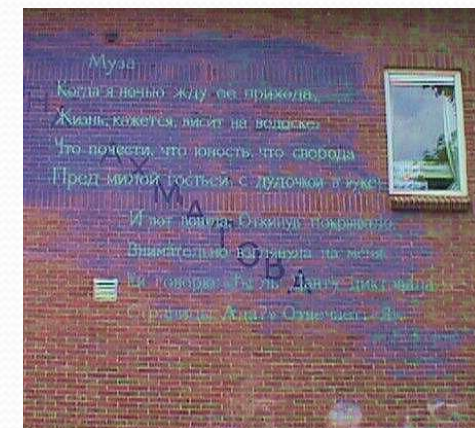 Муза
Когда я ночью жду ее прихода,
Жизнь, кажется, висит на волоске.
Что почести, что юность, что свобода
Пред милой гостьей с дудочкой в руке.
И вот вошла. Откинув покрывало,
Внимательно взглянула на меня.
Ей говорю: «Ты ль Данту диктовала
Страницы Ада?» Отвечает: «Я».
АХМАТОВА